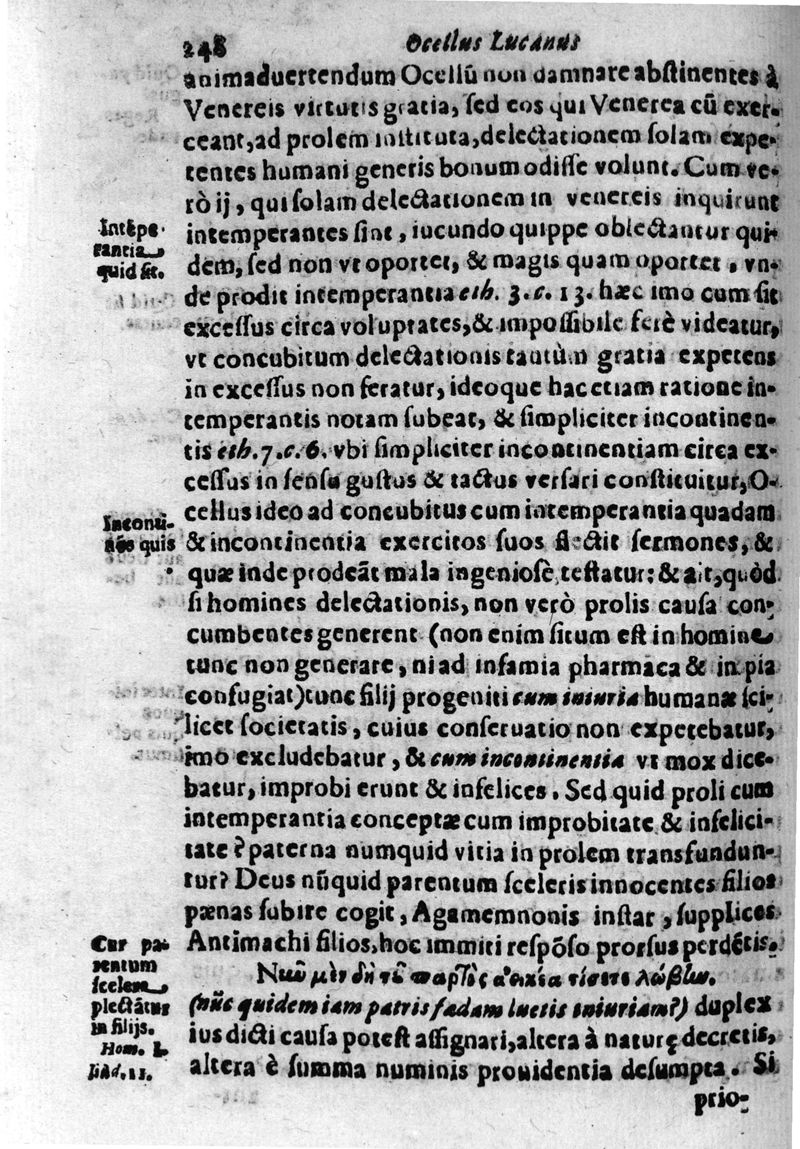 248 Ocellus Lucanus
animaduertendum Ocellū non damnare abſtinentes à
Venereis virtutis gratia, ſed eos qui Venerea cū exer-
ceant, ad prolem inſtituta, delectationem ſolam expe-
tentes humani generis bonum odiſſe volunt. Cum ve-
rò ij, qui ſolam delectationem in venereis inquirunt
intemperantes ſint, iucundo quippe oblectantur qui-
dem, ſed non vt oportet, & magis quam oportet, vn-
de prodit intemperantia eth. 3. c. 13. hæc imo cum ſit
exceſſus circa voluptates, & impoſſibile ferè videatur,
vt concubitum delectationis tantùm gratia expetens
in exceſſus non feratur, ideoque hac etiam ratione in-
temperantis notam ſubeat, & ſimpliciter incontinen-
tis eth. 7. c. 6. vbi ſimpliciter incontinentiam circa ex-
ceſſus in ſenſu guſtus & tactus verſari conſtituitur, O-
cellus ideo ad concubitus cum intemperantia quadam
& incontinentia exercitos ſuos flectit ſermones, &
quæ inde prodeāt mala ingenioſè teſtatur: & ait, quòd
ſi homines delectationis, non verò prolis cauſa con-
cumbentes generent (non enim ſitum eſt in homine
tunc non generare, ni ad infamia pharmaca & impia
confugiat) tunc filij progeniti cum iniuria humanæ ſci-
licet ſocietatis, cuius conſeruatio non expetebatur,
imo excludebatur, & cum incontinentia vt mox dice-
batur, improbi erunt & infelices. Sed quid proli cum
intemperantia conceptæ cum improbitate & infelici-
tate? paterna numquid vitia in prolem transfundun-
tur? Deus nūquid parentum ſceleris innocentes filios
pænas ſubire cogit, Agamemnonis inſtar, ſupplices
Antimachi filios, hoc immiti reſpōſo prorſus perdētis.
Νῦν μὲν δὴ τοῦ πατρὸς ἀεικέα τίσετε λώβην.
(nūc quidem iam patris fædam luetis iniuriam?) duplex
ius dicti cauſa poteſt aſſignari, altera à naturę decretis,
altera è ſumma numinis prouidentia deſumpta. Si
prio-
Intēpe-
rantia
quid ſit.
Inconti-
nēs quis
Cur pa-
rentum
ſcelera
plectātur
in filijs.
Hom. l.
Iliad. 11.